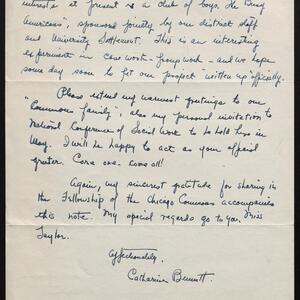 interests at present is a club of boys, the Busy
Americans", sponsored jointly by our district staff
and University Settlement. This is an interesting
experiment in case work - group work - and we hope
some day soon to get our project written up officially.
Please extend my warmest greetings to our
"Commons family", also my personal invitation to
National Conference of Social Work to be held here in
May. I will be happy to act as your official
greeter. Come one. Come all!
Again, my sincerest gratitude for sharing in
the Fellowship of the Chicago Commons accompanies
this note. My special regards go to you, Miss
Taylor.
Affectionately,
Catharine Bennett.